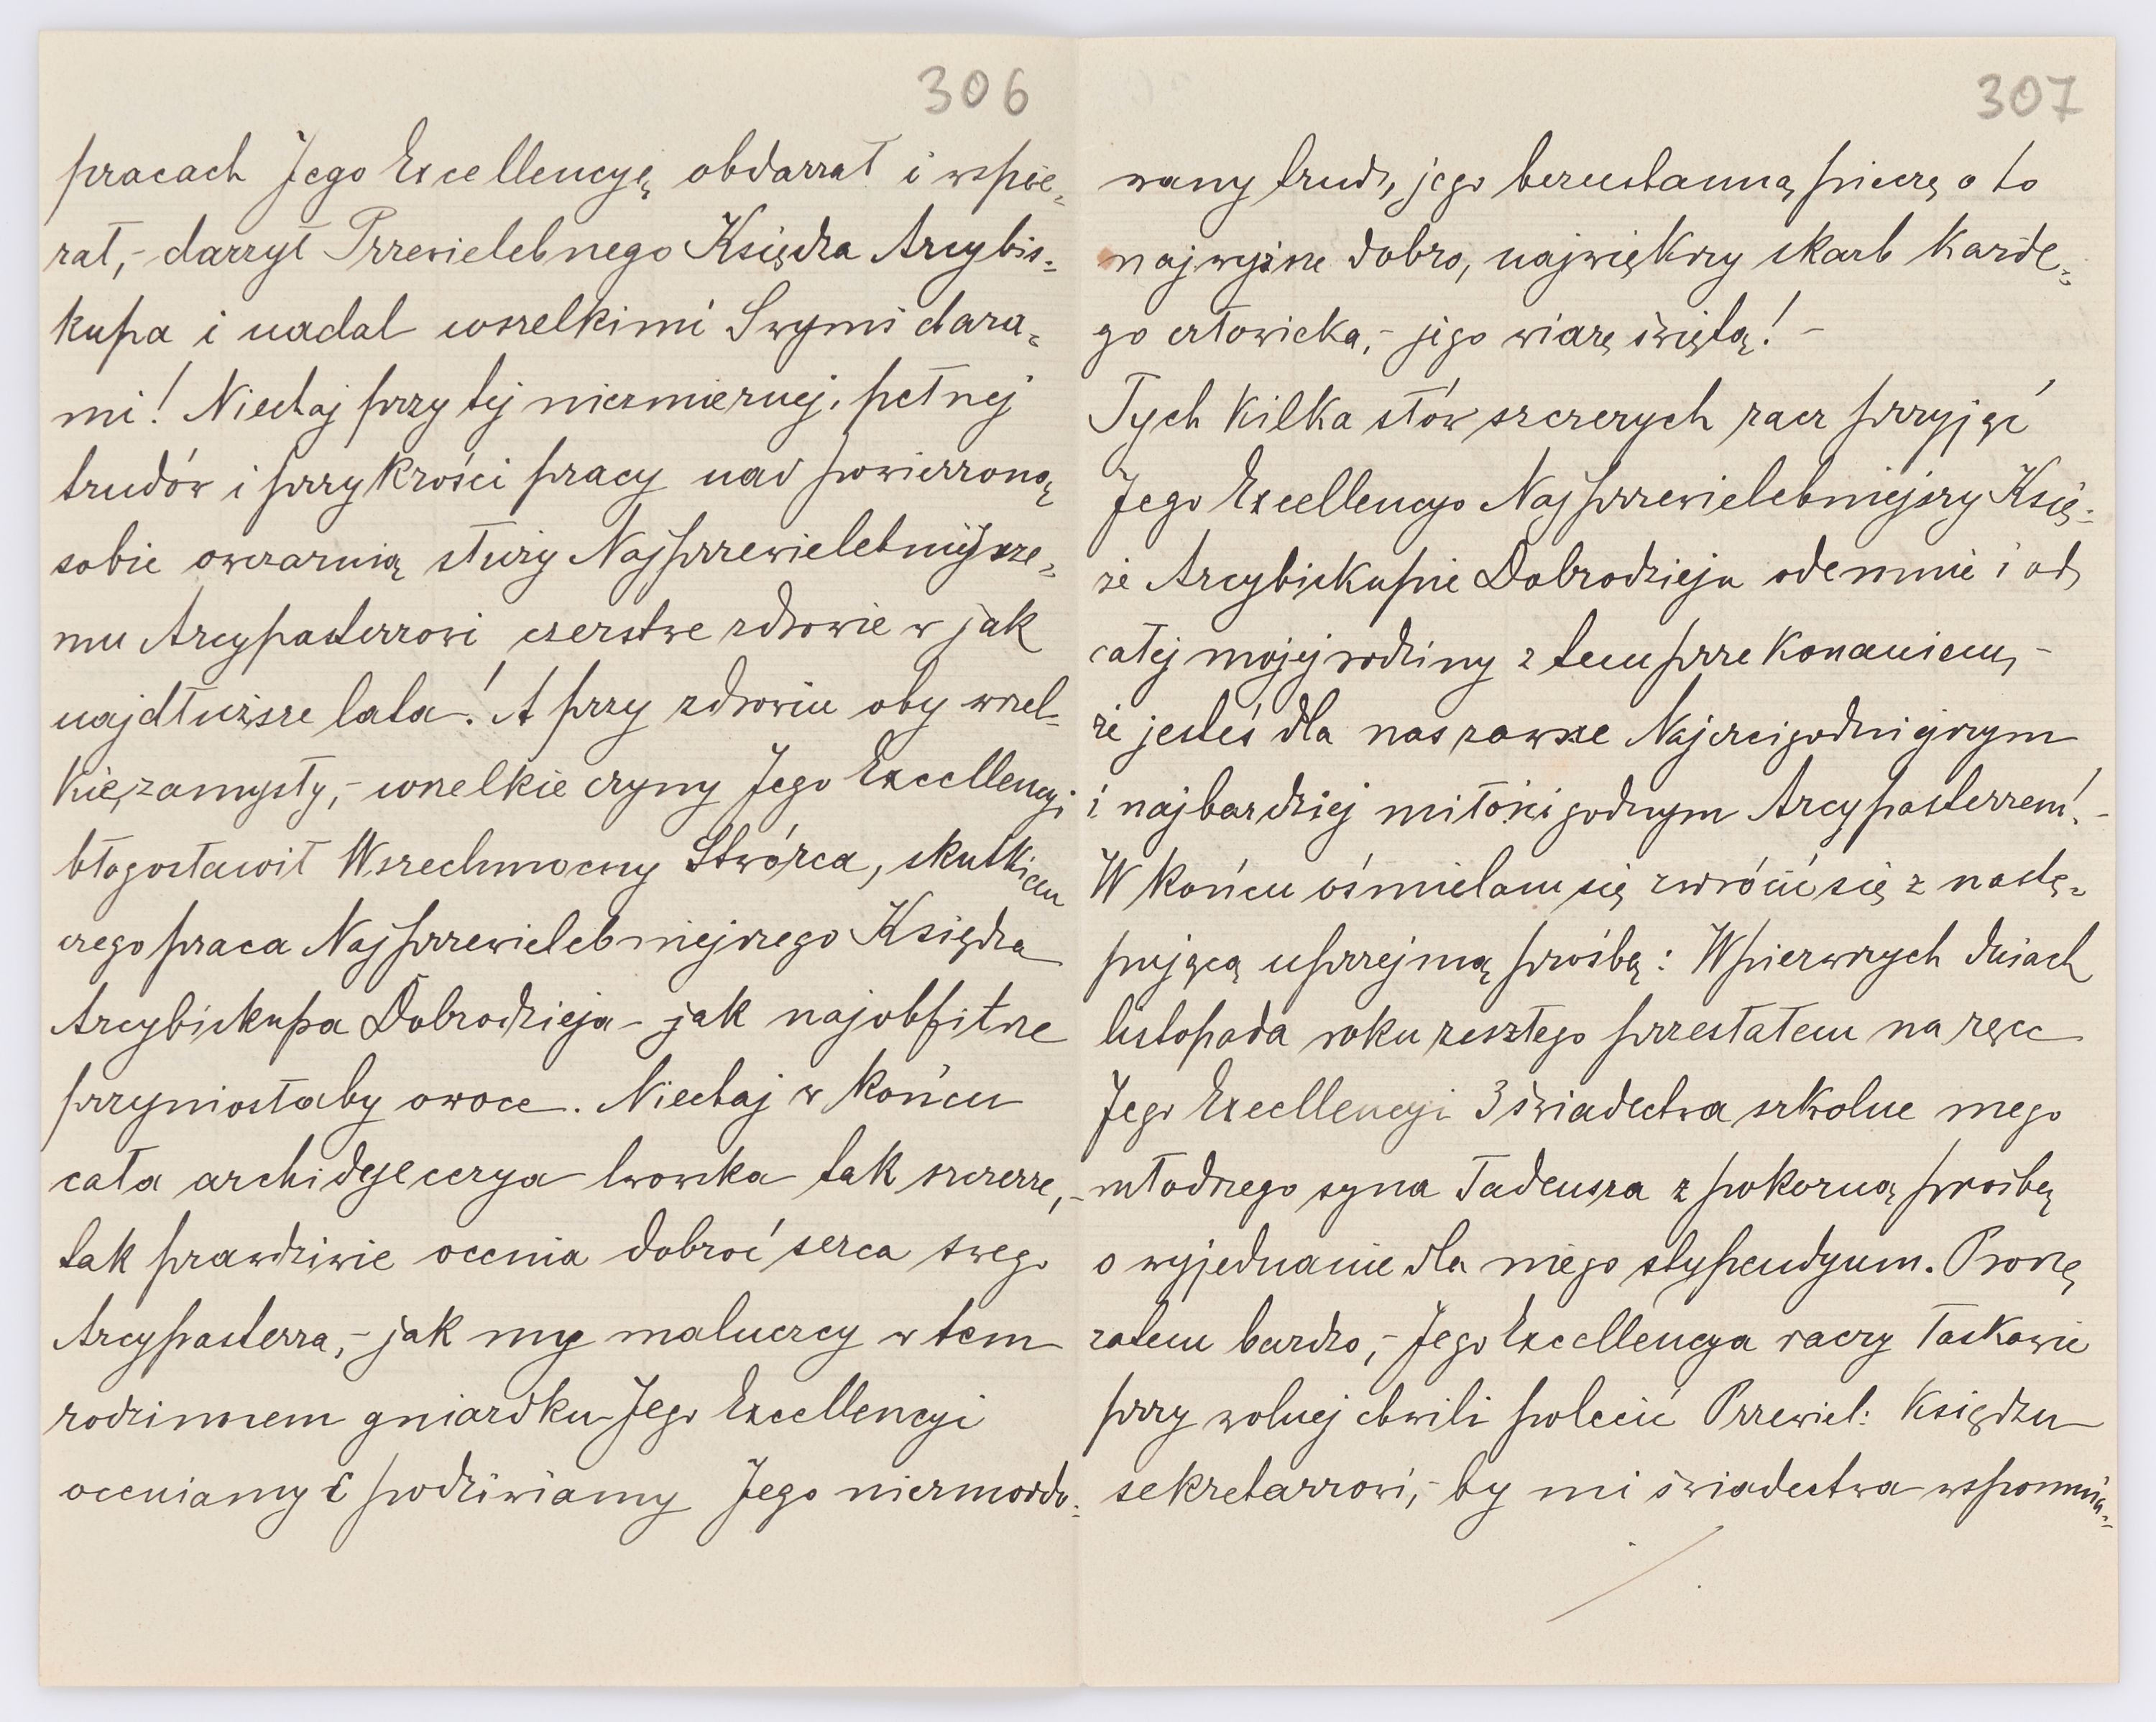 306
pracach Jego Excellencyę obdarzał i wspie-
rał, - darzył Przewielebnego Księdza Arcybis-
kupa i nadal wszelkimi Swymi dara-
mi! Niechaj przy tej niezmiernej, pełnej
trudów i przykrości pracy nad powierzoną
sobie owczarnią służy Najprzewielebniejsze-
mu Arcypasterzowi czerstwe zdrowie w jak
najdłuższe lata! A przy zdrowiu oby wszel-
kie zamysły, - wszelkie czyny Jego Excellencyi
błogosławił Wszechmocny Stwórca, skutkiem
czego praca Najprzewielebniejszego Księdza
Arcybiskupa Dobrodzieja - jak najobfitsze
przyniosłaby owoce. Niechaj w końcu
cała archidyecezya lwowska tak szczerze, -
tak prawdziwie ocenia dobroć serca swego
Arcypasterza, - jak my maluczcy w tem
rodzinnem gniazdku Jego Excellencyi
oceniamy i podziwiamy Jego niezmordo-
307
wany trud, jego bezustanną pieczę o to
najwyższe dobro, największy skarb każde-
go człowieka, - jego wiarę świętą! -
Tych kilka słów szczerych racz przyjąć
Jego Excellencyo Najprzewielebniejszy Księ-
że Arcybiskupie Dobrodzieju odemnie i od
całej mojej rodziny z tem przekonaniem, -
że jesteś dla nas zawsze Najczcigodniejszym
i najbardziej miłości godnym Arcypasterzem! -
W końcu ośmielam się zwrócić się z nastę-
pującą uprzejmą prośbą: W pierwszych dniach
listopada roku zeszłego przesłałem na ręce
Jego Excellencyi 3 świadectwa szkolne mego
młodszego syna Tadeusza z pokorną prośbą
o wyjednanie dla niego stypendyum. Proszę
zatem bardzo, - Jego Excellencya raczy łaskawie
przy wolnej chwili polecić Przewiel: Księdzu
sekretarzowi, - by mi świadectwa wspomnia-